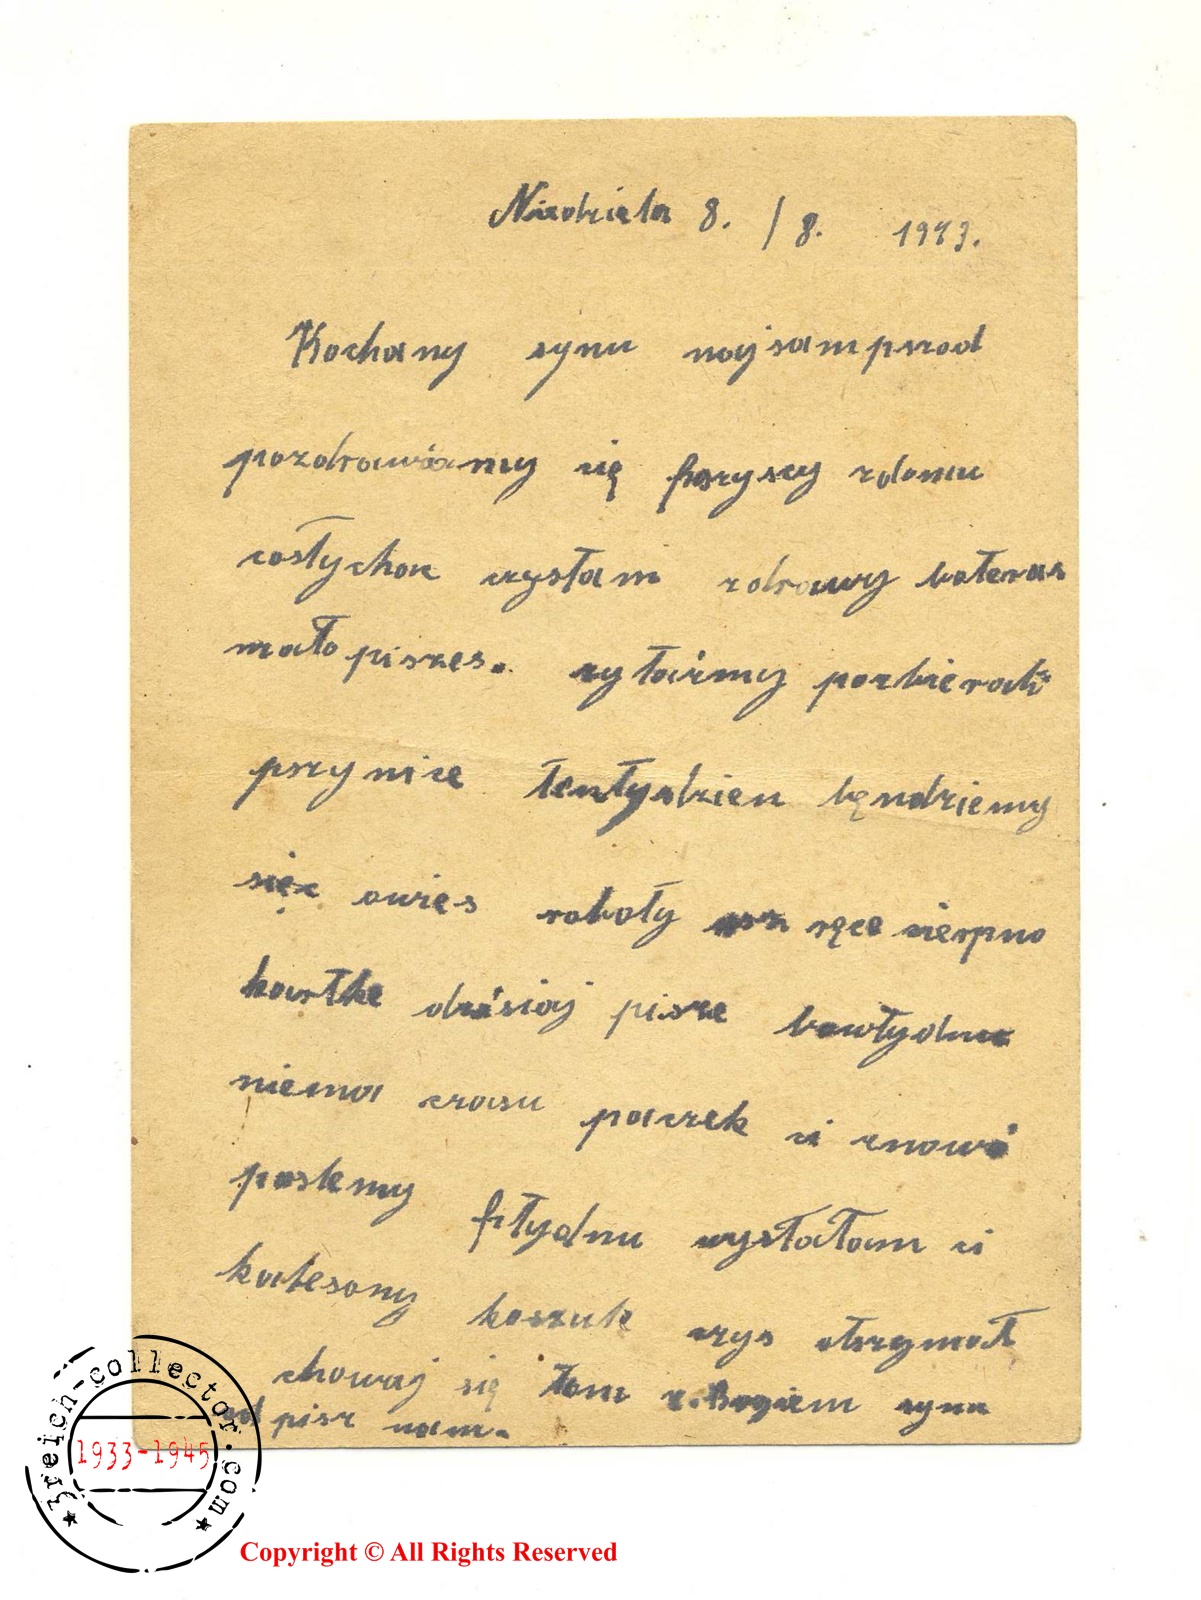 Niedziela 8. / 8. 1943.
Kochany synu najsamprzod
pozdrawiamy cię fszyscy zdomu
cosłychac czystam zdrowy boteras
mało piszes. żytośmy pozbierali
pszynice tentydzien będziemy
siec owies roboty ręce cierpno
kartke dzisiaj pisze bowtydniu
niema czasu paczek ci znowó
poslemy ftydniu wysłałam ci
kalesony koszule czys otszymał
chowaj się tam z Bogiem synu
od pisz nam.
3reich-collector.com
1933-1945
Copyright © All Rights Reserved